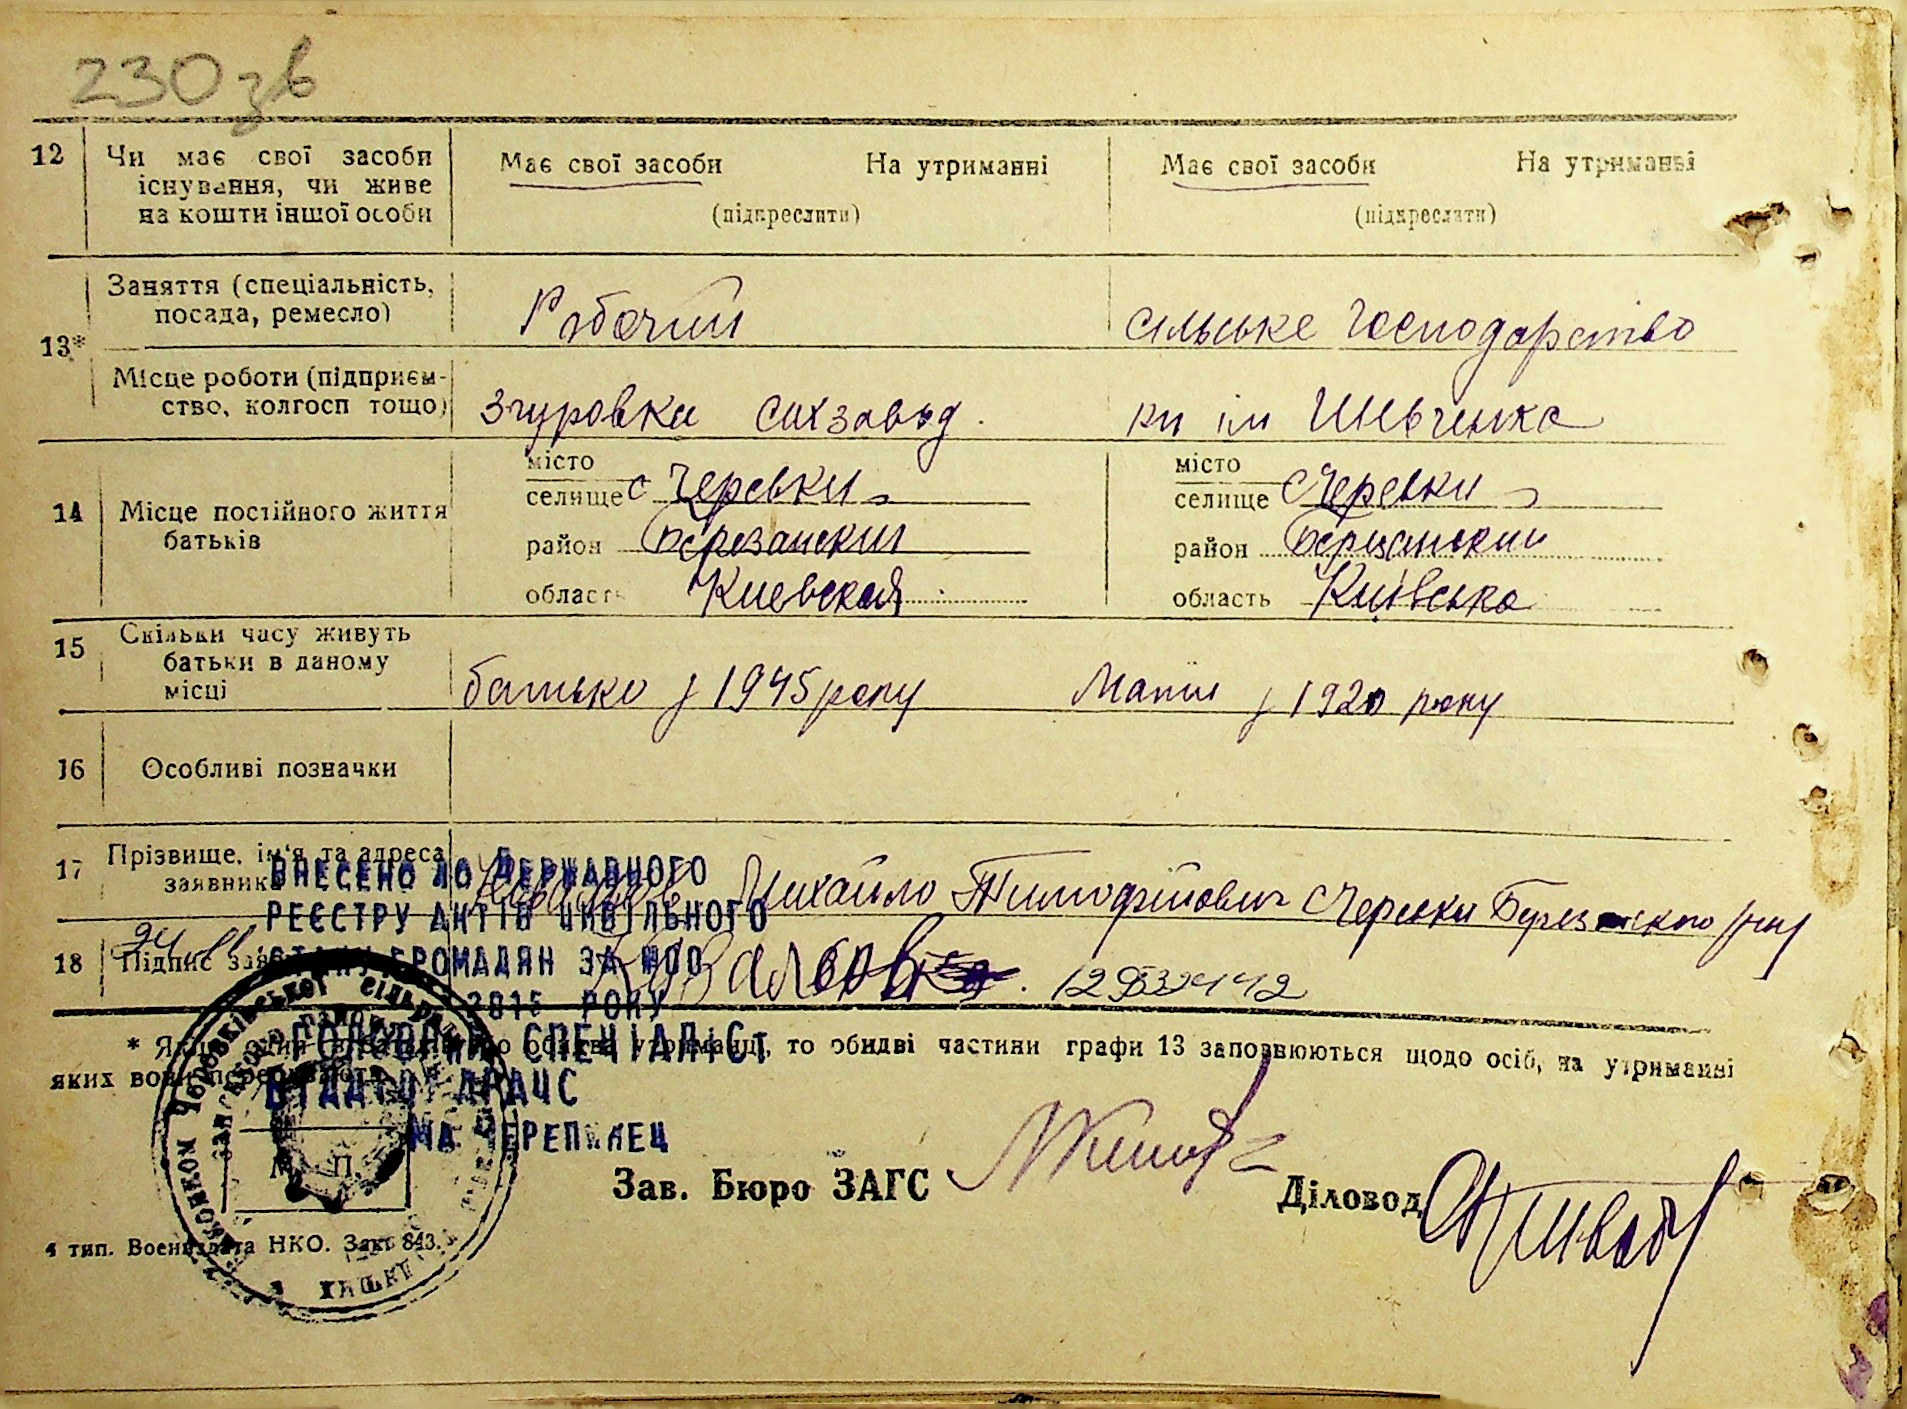 230зв
12 Чи має свої засоби існування, чи живе на кошти іншої особи
Має свої засоби На утриманні Має свої засоби На утриманні
(підкреслити) (підкреслити)
13*
Заняття (спеціальність, посада, ремесло) Рабочий сільське господарство
Місце роботи (підприємство, колгосп тощо) Згуровка Сахзавод. кп ім Шевченка
14 Місце постійного життя батьків
місто місто
селище с Черевки селище с Черевки
район Березанский район Березанський
область Киевская область Київська
15 Скільки часу живуть батьки в даному місці
батько з 1945 року Мати з 1920 року
16 Особливі позначки
17 Прізвище, ім'я та адреса заявника
Михайло Тимофійович с Черевки Березанського р-ну
18 Підпис
12953244 42
ВНЕСЕНО ДО ДЕРЖАВНОГО
РЕЄСТРУ АКТІВ ЦИВІЛЬНОГО
СТАНУ ГРОМАДЯН ЗА
2015 РОКУ
ГОЛОВНИЙ СПЕЦІАЛІСТ
ВІДДІЛУ ДРАЦС
ЧЕРЕПИНЕЦ
* Якщо то обидві частини графи 13 заповнюються щодо осіб, на утриманні
яких вони
М. П.
Зав. Бюро ЗАГС Діловод
4 тип. Воениздата НКО. Зак. 843.